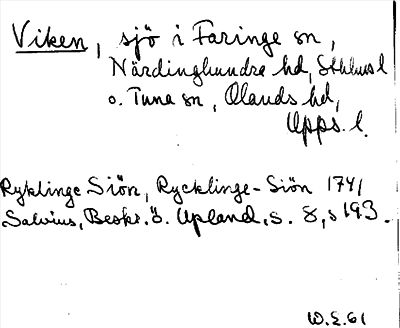 Viken, sjö i Faringe sn,
Närdinghundra hd, Sthlms l
o. Tuna sn, Olands hd,
Upps. l.
Ryklinge Siön, Rycklinge-Siön 1741
Salvius, Beskr. ö. Upland, s. 8, s 193.
W.E. 61